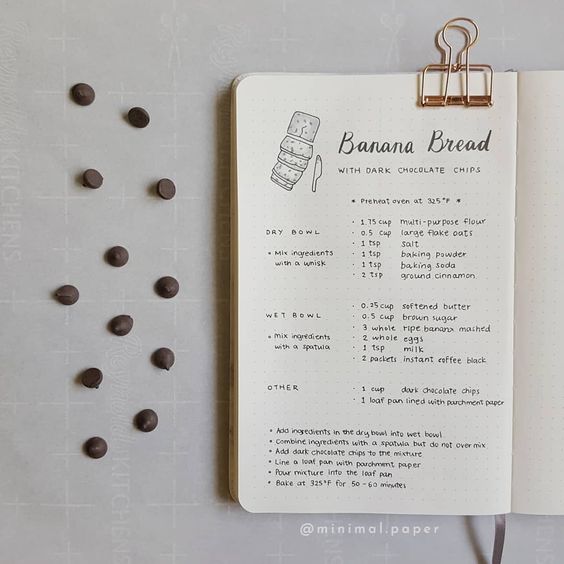 Banana Bread
WITH DARK CHOCOLATE CHIPS
* Preheat oven at 325°F *
DRY BOWL
• Mix ingredients
with a whisk
· 1.75 cup multi-purpose flour
· 0.5 cup large flake oats
· 1 tsp salt
· 1 tsp baking powder
· 1 tsp baking soda
· 2 tsp ground cinnamon
WET BOWL
• Mix ingredients
with a spatula
· 0.25 cup softened butter
· 0.5 cup brown sugar
· 3 whole ripe banana mashed
· 2 whole eggs
· 1 tsp milk
· 2 packets instant coffee black
OTHER
· 1 cup dark chocolate chips
· 1 loaf pan lined with parchment paper
• Add ingredients in the dry bowl into wet bowl
• Combine ingredients with a spatula but do not over mix
• Add dark chocolate chips to the mixture
• Line a loaf pan with parchment paper
• Pour mixture into the loaf pan
• Bake at 325°F for 50-60 minutes
@minimal.paper